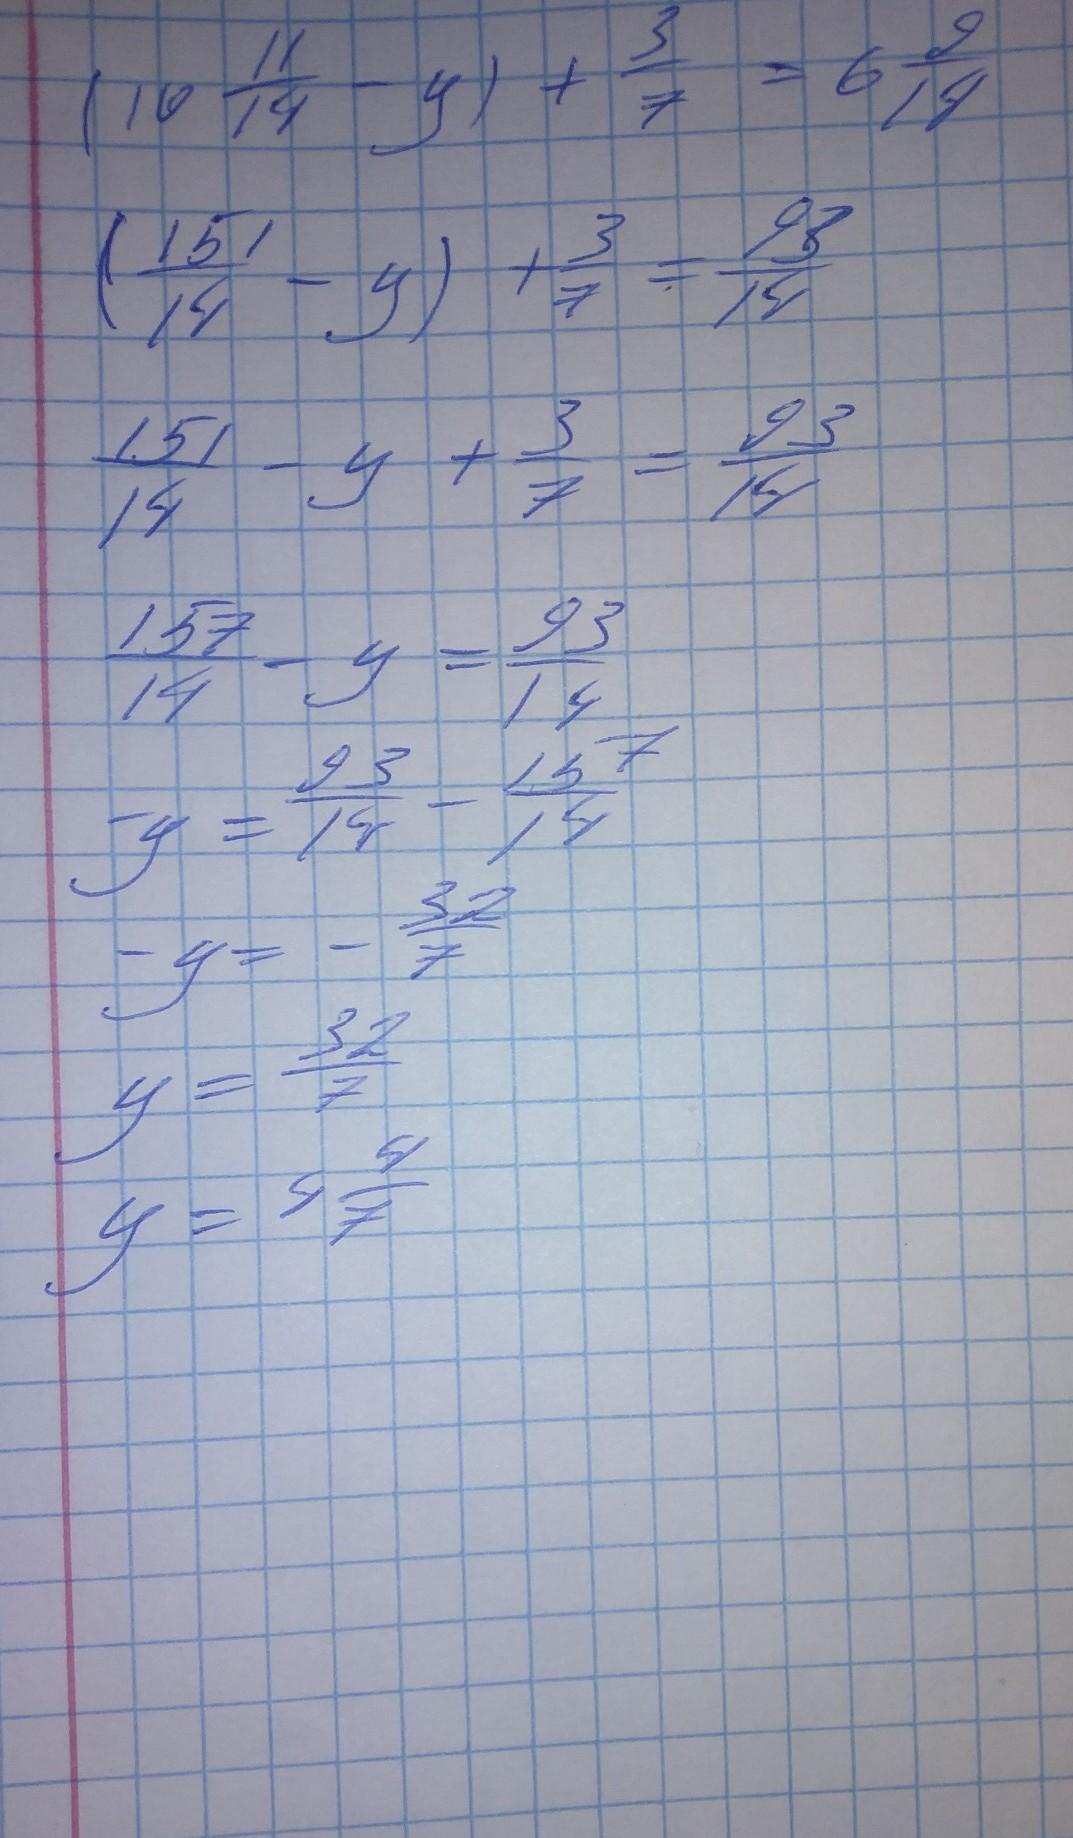 (10 11/14 - y) + 3/7 = 6 9/14
(151/14 - y) + 3/7 = 93/14
151/14 - y + 3/7 = 93/14
157/14 - y = 93/14
-y = 93/14 - 157/14
-y = - 32/7
y = 32/7
y = 4 4/7